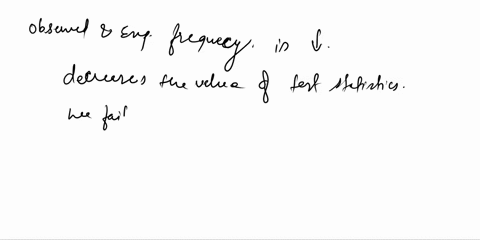 observed & Exp. frequecy. is ↓.
decreases the value of test statistics.
we fail